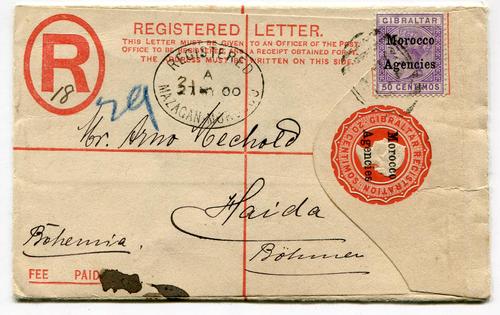 REGISTERED LETTER.
THIS LETTER MUST BE GIVEN TO AN OFFICER OF THE POST
OFFICE TO BE REGISTERED A RECEIPT OBTAINED FOR IT.
THE ADDRESS MUST BE WRITTEN ON THIS SIDE.
R
18
29
REGISTERED
A
00
MAZAGAN
GIBRALTAR
Morocco
Agencies
50 CENTIMOS
GIBRALTAR REGISTRATION
20 CENTIMOS
Morocco
Agencies
Mr. Arno Mechold
Haida
Böhmen
Bohemia.
FEE PAID